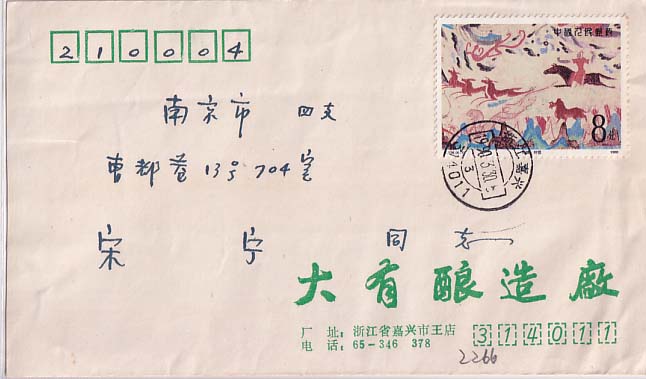 210004
中国人民邮政
8分
南京市 四支
曹都巷13号704室
宋宁同志
大有酿造廠
厂 址:浙江省嘉兴市王店
314011
电 话:65-346 378
2266